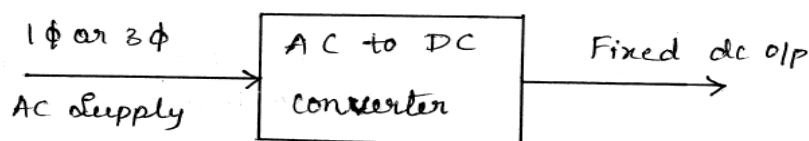 1ϕ or 3ϕ
AC Supply
AC to DC
converter
Fixed dc o/p